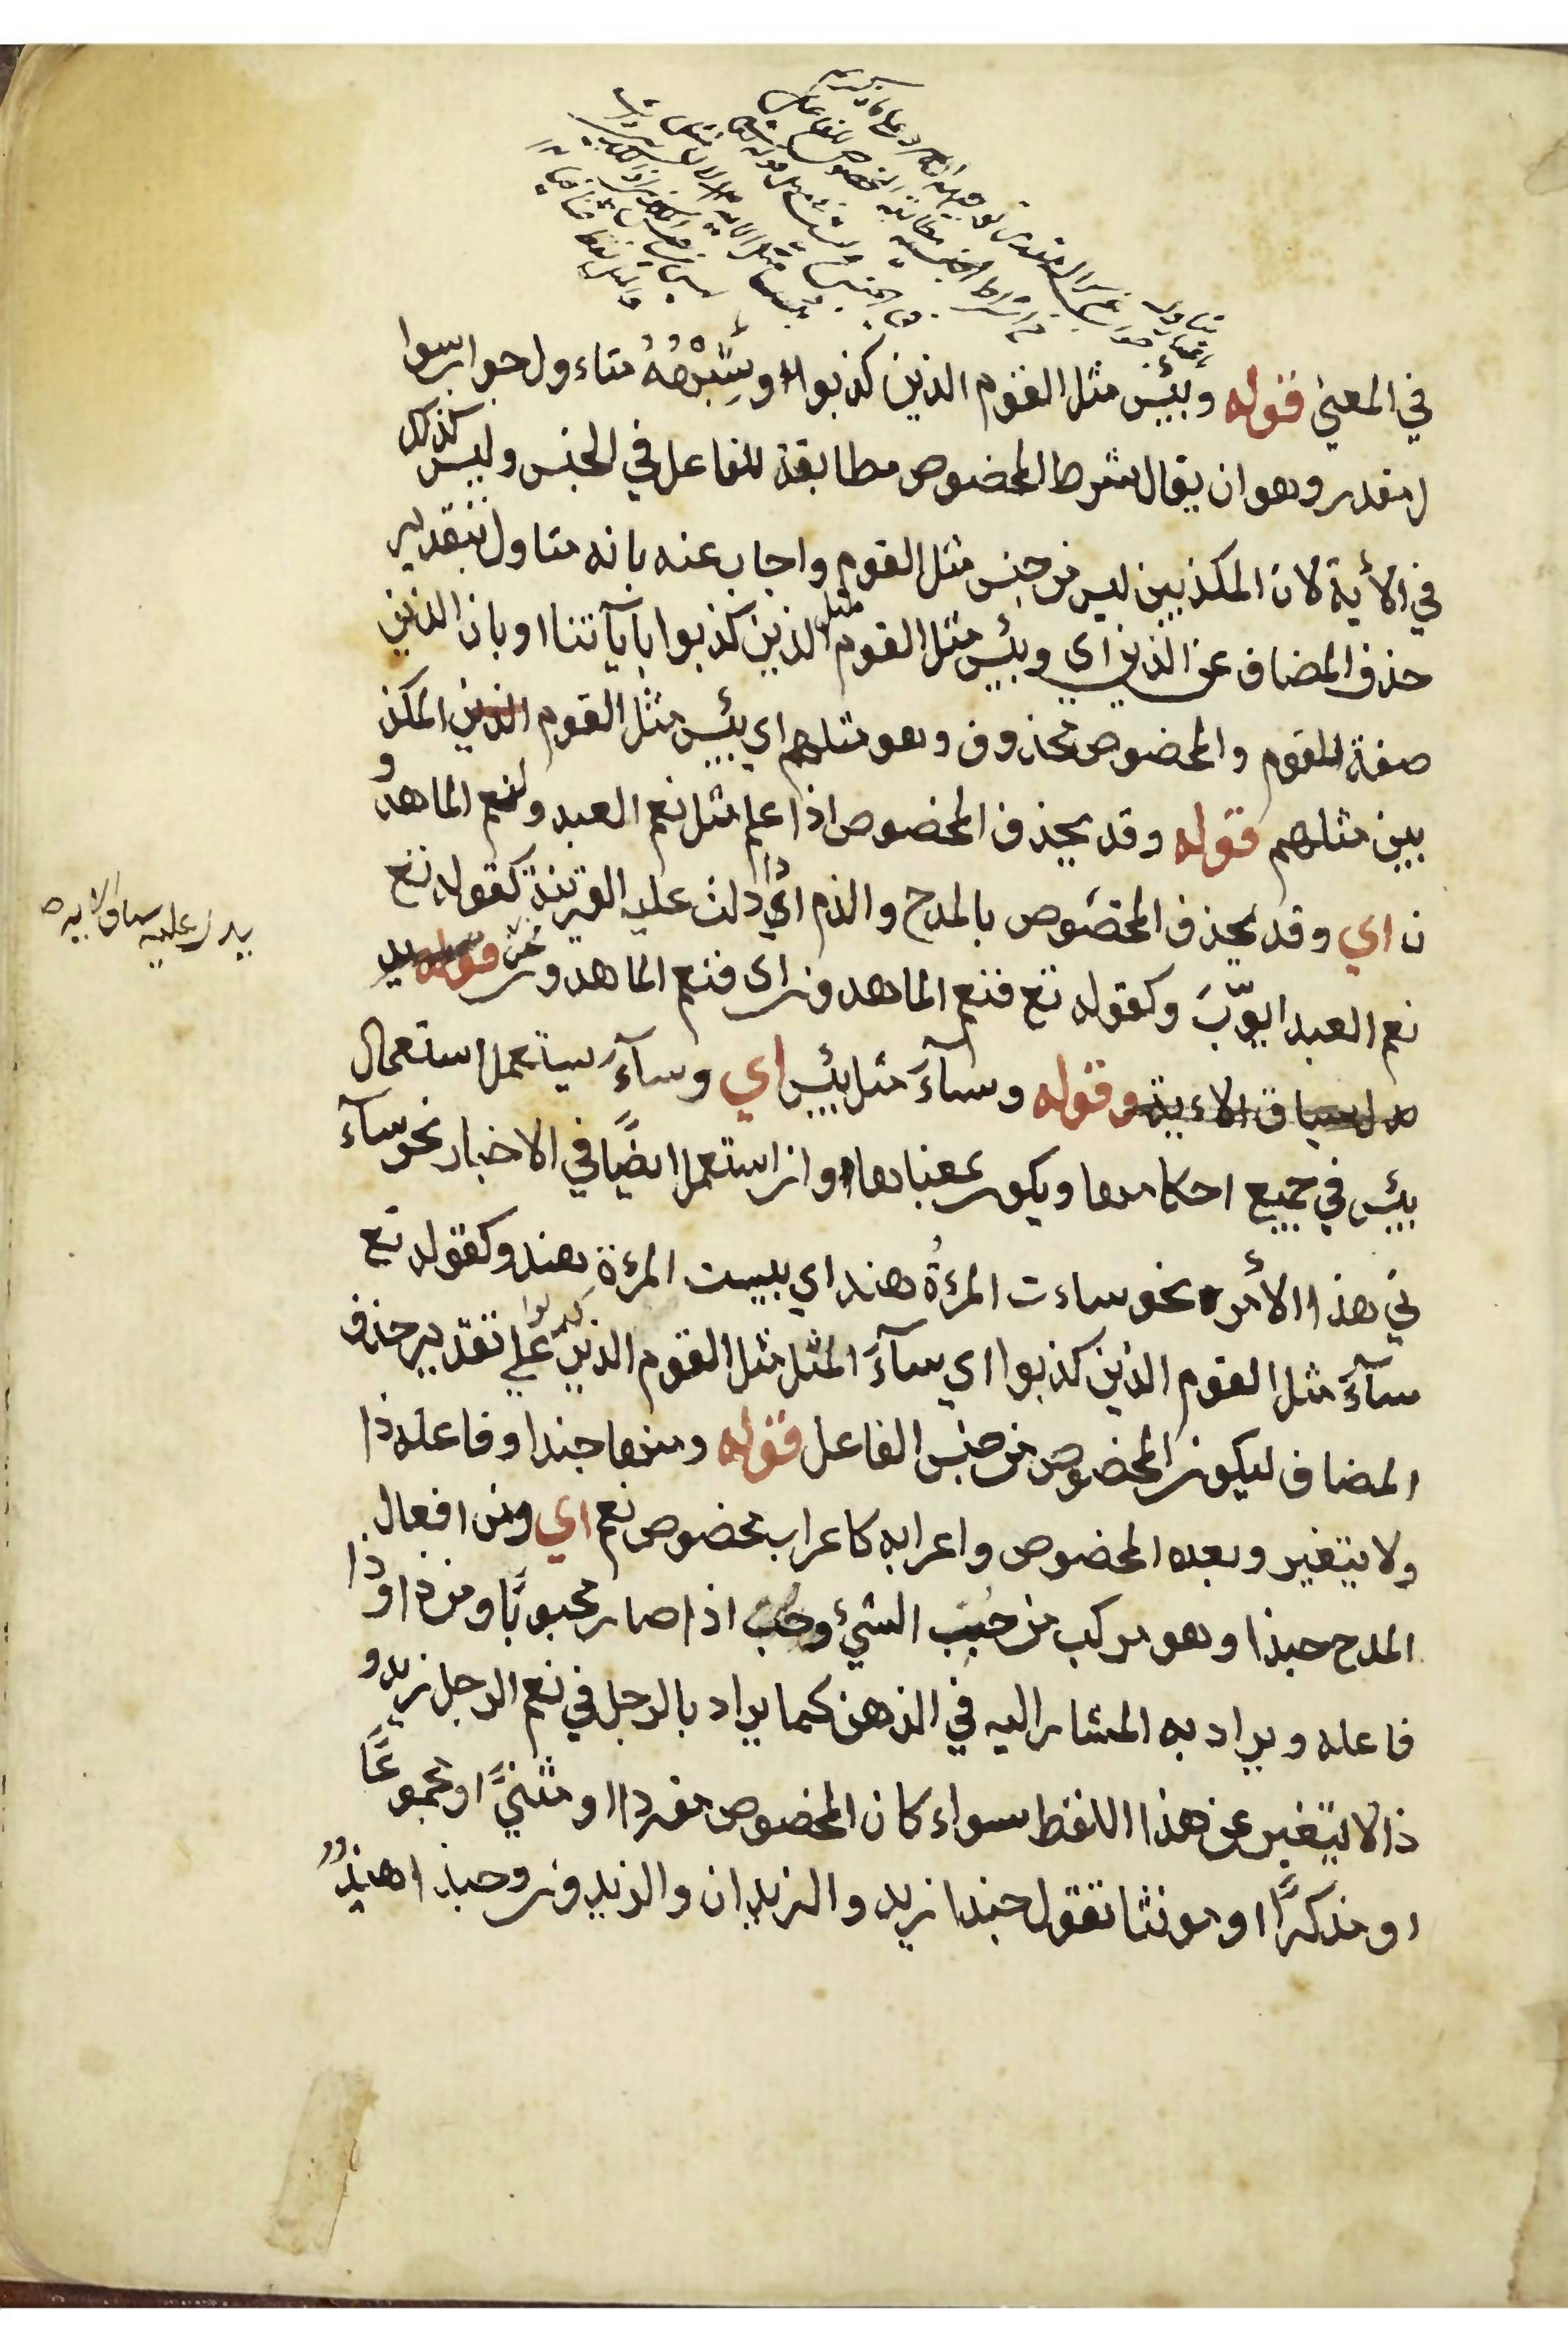 في المعنى قوله وبئس مثل القوم الذين كذبوا وشِبْهُهُ متاءول جواب سوا
ل مقدر وهو ان يقال شرط المخصوص مطابقة للفاعل في الجنس وليس كذلك
في الأية لان المكذبين ليس من جنس مثل القوم واجاب عنه بانه متاول بتقدير
حذف المضاف عن الذين اي وبئس مثل القوم مثل الذين كذبوا بآياتنا او بان الذين
صفة للقوم والمخصوص محذوف وهو مثلهم اي بئس مثل القوم الذين المكذ
بين مثلهم قوله وقد يحذف المخصوص اذا علم مثل نعم العبد ولنعم الماهدو
ن اي وقد يحذف المخصوص بالمدح والذم اي اذا دلت عليه القرينة كقوله تع
نعم العبد ايوّبَ وكقوله تع فنعم الماهدون اى فنعم الماهدون نحن قوله يد
يدل عليه سياق الايه
دل سياق الاءية وقوله وسآءَ مثل بئس اي وسآءَ يستعمل استعمال
بئس في جميع احكامها ويكون بمعناها وان استعمل ايضًا في الاخبار نحو سآء
ني هذا الأمر نحو ساءت المرءةُ هند اي بيست المرءة هند وكقوله تع
سآءَ مثل القوم الذين كذبوا اي سآءَ المثل مثل القوم الذين كذبوا علي تقدير حذف
المضاف ليكون المخصوص من جنس الفاعل قوله ومنها حبذا وفاعله ذا
ولا يتغير وبعده المخصوص واعرابه كاعراب مخصوص نعم اي ومن افعال
المدح حبذا وهو مركب من حبب الشيء وحب اذا صار محبوبًا ومن ذا وذا
فاعله ويراد به المشار اليه في الذهن كما يراد بالرجل في نعم الرجل زيد و
ذا لا يتغير عن هذا اللفظ سواء كان المخصوص مفردا او مثنيً او مجموعًا
او مذكرًا او مونثا تقول حبذا زيد والزيدان والزيدون وحبذا هندٌ